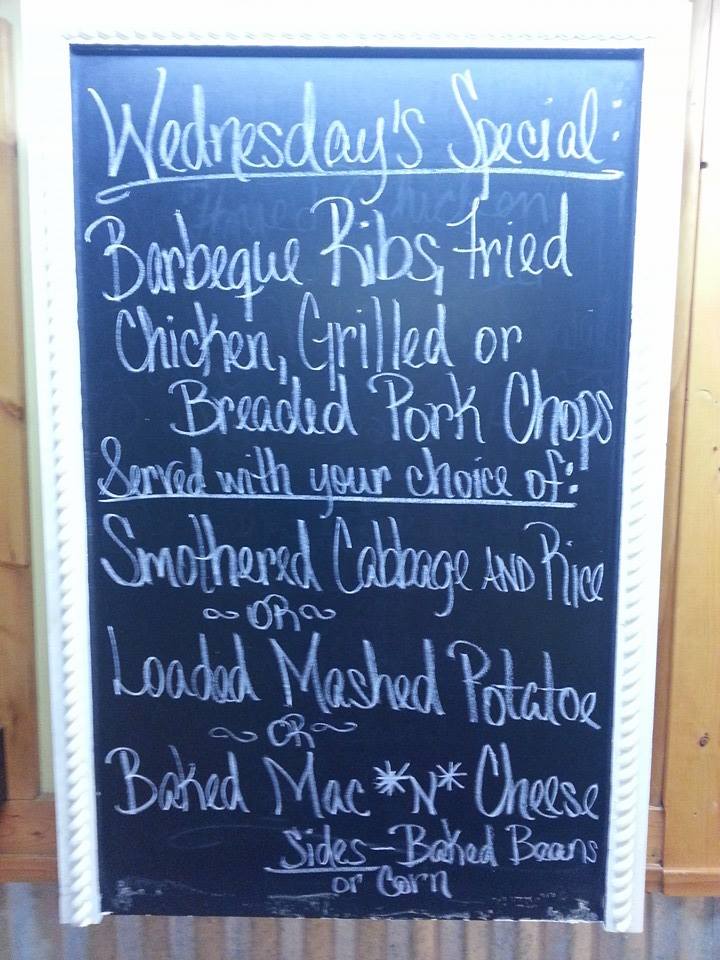 Wednesday's Special:
Barbeque Ribs, Fried
Chicken, Grilled or
Breaded Pork Chops
Served with your choice of:
Smothered Cabbage AND Rice
~ OR ~
Loaded Mashed Potatoe
~ OR ~
Baked Mac *N* Cheese
Sides - Baked Beans
or Corn